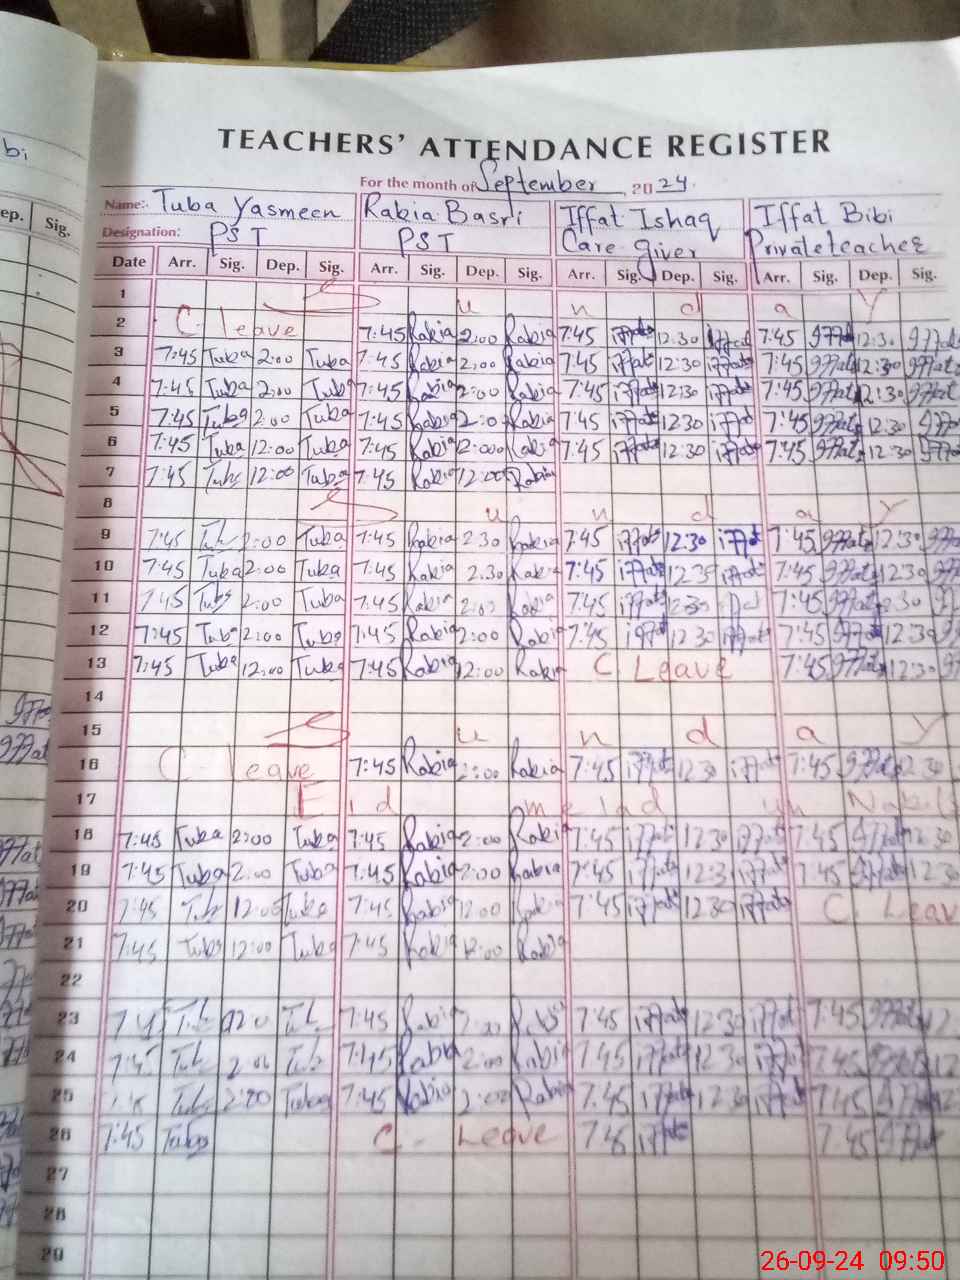 bi
TEACHERS' ATTENDANCE REGISTER
For the month of September 2024
Name: Tuba Yasmeen Rabia Basri Iffat Ishaq Iffat Bibi
Designation: PST PST Care giver Private teacher
ep. Sig. Date Arr. Sig. Dep. Sig. Arr. Sig. Dep. Sig. Arr. Sig. Dep. Sig. Arr. Sig. Dep. Sig.
1 S u n d a y
2 C. leave 7:45 Rabia 2:00 Rabia 7:45 iffat 12:30 iffat 7:45 iffat 12:30 iffat
3 7:45 Tuba 2:00 Tuba 7:45 Rabia 2:00 Rabia 7:45 iffat 12:30 iffat 7:45 iffat 12:30 iffat
4 7:45 Tuba 2:00 Tuba 7:45 Rabia 2:00 Rabia 7:45 iffat 12:30 iffat 7:45 iffat 12:30 iffat
5 7:45 Tuba 2:00 Tuba 7:45 Rabia 2:0 Rabia 7:45 iffat 12:30 iffat 7:45 iffat 12:30 iffat
6 7:45 Tuba 12:00 Tuba 7:45 Rabia 12:00 Rabia 7:45 iffat 12:30 iffat 7:45 iffat 12:30 iffat
7 7:45 Tuba 12:00 Tuba 7:45 Rabia 12:00 Rabia
8 S u n d a y
9 7:45 2:00 Tuba 7:45 Rabia 2:30 Rabia 7:45 iffat 12:30 iffat 7:45 iffat 12:30
10 7:45 Tuba 2:00 Tuba 7:45 Rabia 2:30 Rabia 7:45 iffat iffat 7:45 iffat 12:30
11 7:45 Tuba 2:00 Tuba 7:45 Rabia Rabia 7:45 iffat 12:30 7:45 iffat
12 7:45 Tuba 2:00 Tuba 7:45 Rabia 2:00 Rabia 7:45 iffat 12:30 iffat 7:45 iffat 12:30
13 7:45 Tuba 12:00 Tuba 7:45 Rabia 12:00 Rabia C. Leave 7:45 iffat 12:30
14
15 S u n d a y
16 C- leave 7:45 Rabia 2:00 Rabia 7:45 iffat 12:30 iffat 7:45 iffat 12:30
17 Eid melad un Nabi
18 7:45 Tuba 2:00 Tuba 7:45 Rabia 2:00 Rabia 7:45 iffat 12:30 iffat 7:45 iffat 12:30
19 7:45 Tuba 2:00 Tuba 7:45 Rabia 2:00 Rabia 7:45 iffat 12:3 iffat 7:45 iffat 12:30
20 7:45 12:00 Tuba 7:45 Rabia 12:00 Rabia 7:45 iffat 12:30 iffat C. Leav
21 7:45 Tuba 12:00 Tuba 7:45 Rabia 12:00 Rabia
22
23 7:45 Rabia Rabia 7:45 iffat 12:30 iffat 7:45 iffat 12
24 7:45 2:00 Rabia 2:00 Rabia 7:45 iffat 12:30 iffat 7:45 12
25 Tuba 2:00 7:45 Rabia 2:00 Rabia 7:45 iffat 12:30 iffat 7:45 iffat
26 7:45 Tuba C - Leave iffat 7:45 iffat
27
28
29
26-09-24 09:50